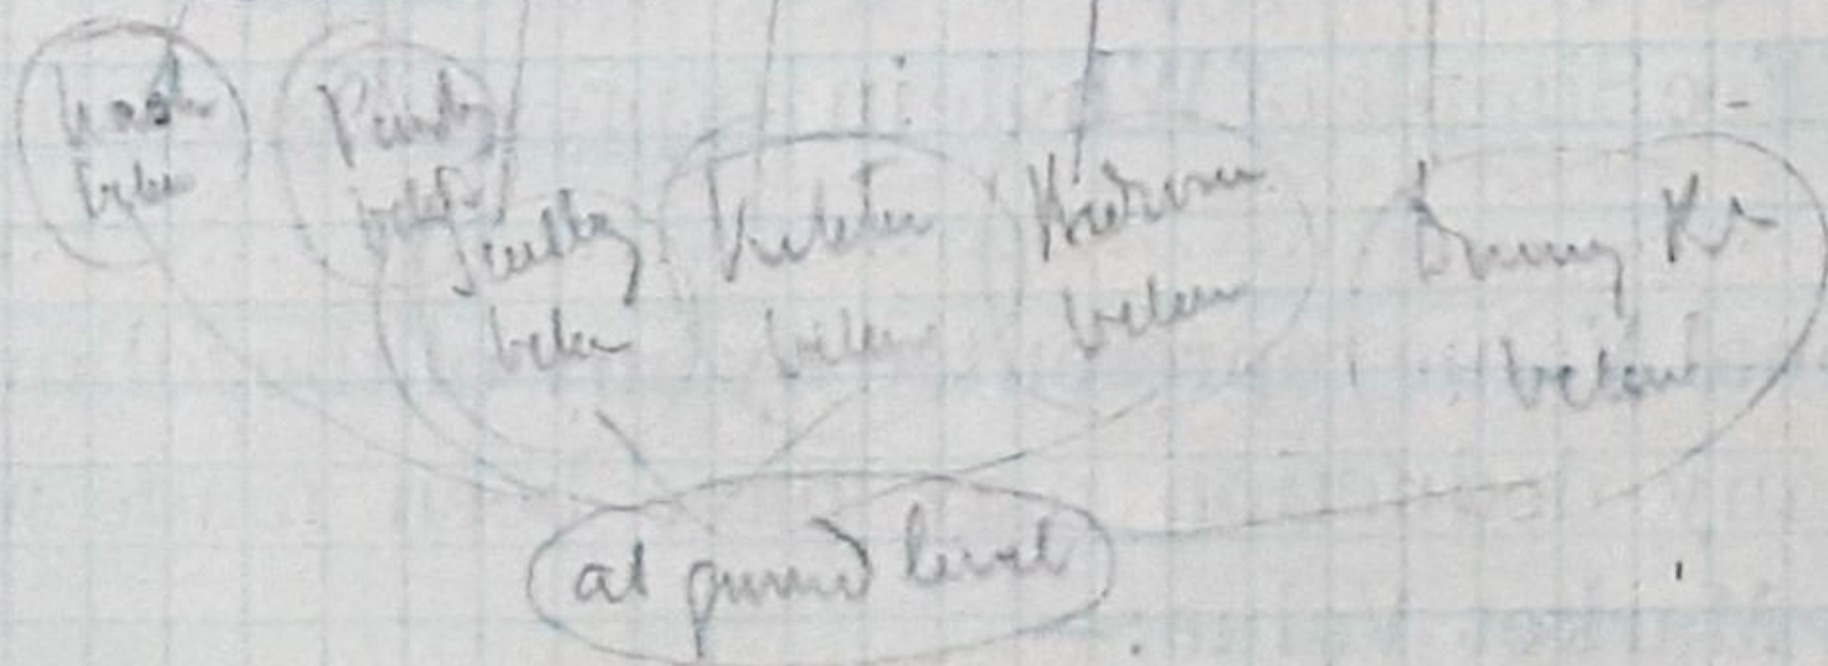 Wash
below
Pantry
below
Scullery
below
Kitchen
below
Bedroom
below
Dining Rm
below
at ground level